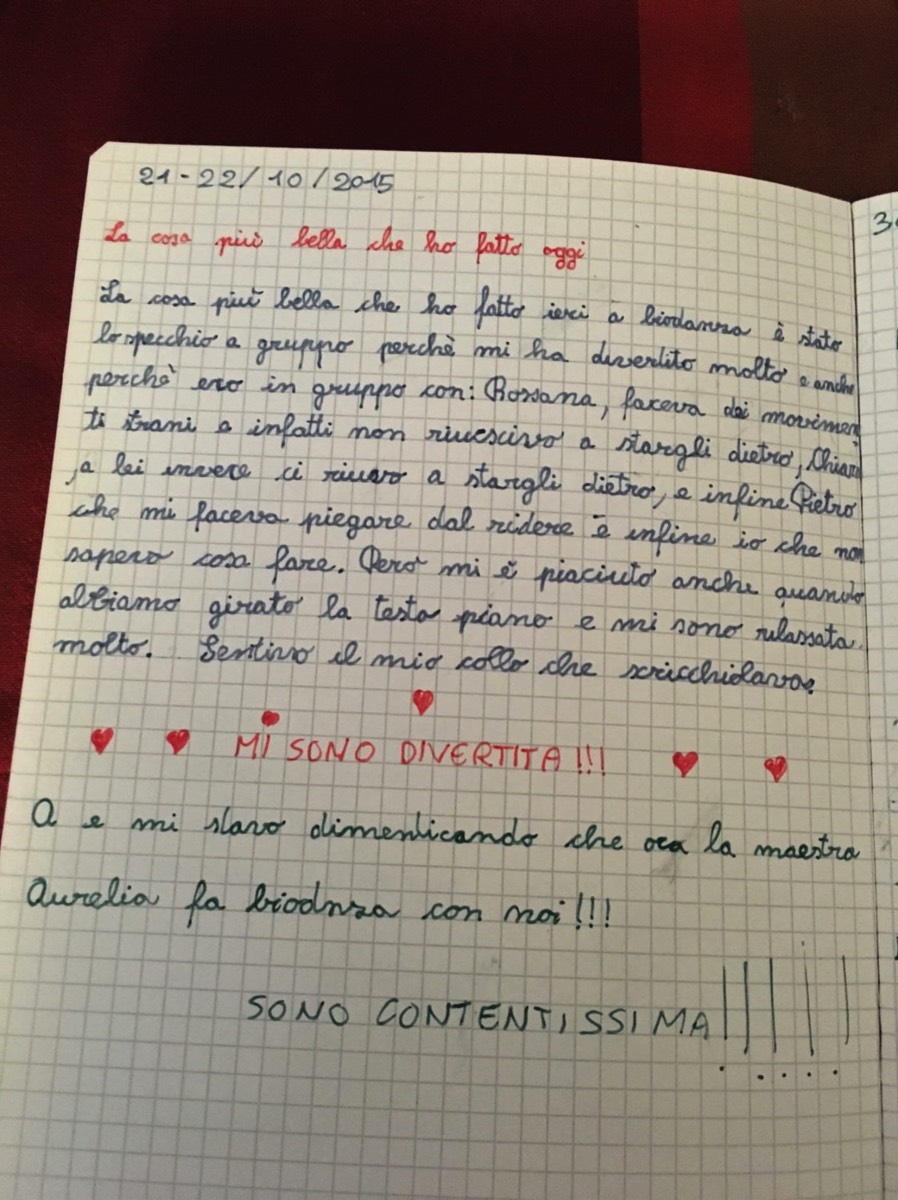 21-22/10/2015
La cosa più bella che ho fatto oggi
La cosa più bella che ho fatto ieri a biodanza è stato
lo specchio a gruppo perchè mi ha divertito molto e anche
perchè ero in gruppo con: Rossana, faceva dei movimen
ti strani e infatti non riuescivo a stargli dietro, Chiar
,a lei invece ci riuavo a stargli dietro, e infine Pietro
che mi faceva piegare dal ridere e infine io che non
sapevo cosa fare. Però mi è piaciuto anche quando
abbiamo girato la testa piano e mi sono rilassata
molto. Sentivo il mio collo che scricchiolava.
MI SONO DIVERTITA!!!
A e mi stavo dimenticando che ora la maestra
Aurelia fa biodnza con noi!!!
SONO CONTENTISSIMA!!!!!
3